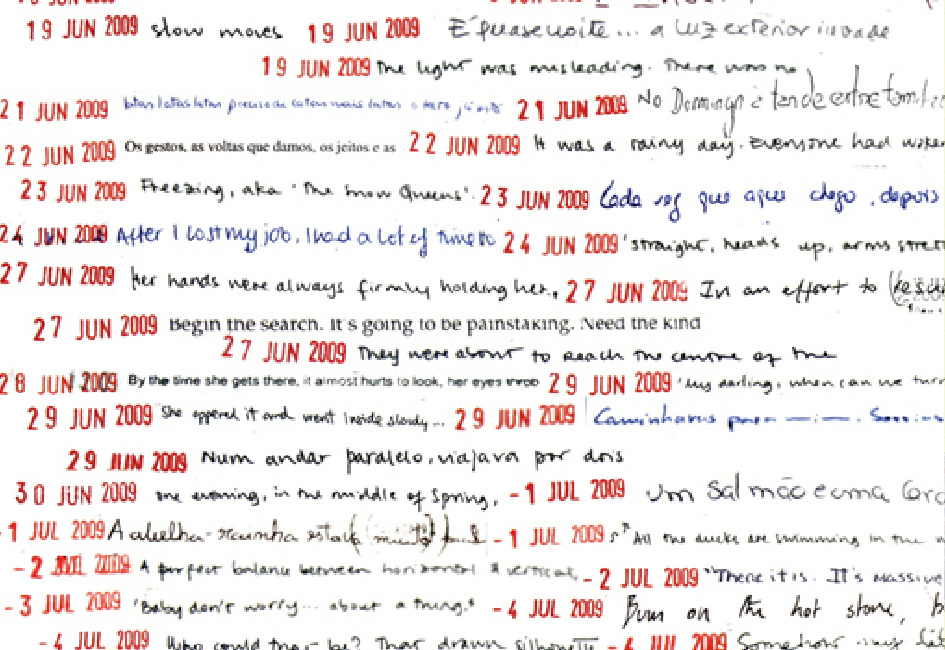 19 JUN 2009 slow moves 19 JUN 2009 É quase noite... a luz exterior invade
19 JUN 2009 The light was misleading. There was no
21 JUN 2009 21 JUN 2009 No Domingo
22 JUN 2009 Os gestos, as voltas que damos, os jeitos e as 22 JUN 2009 It was a rainy day. Everyone had
23 JUN 2009 Freezing, aka 'The Snow Queens'. 23 JUN 2009 Cada vez que aqui chego, depois
24 JUN 2009 After I lost my job, I had a lot of time to 24 JUN 2009 'straight, heads up, arms
27 JUN 2009 Her hands were always firmly holding her, 27 JUN 2009 In an effort to
27 JUN 2009 Begin the search. It's going to be painstaking. Need the kind
27 JUN 2009 They were about to reach the centre of the
28 JUN 2009 By the time she gets there, it almost hurts to look, her eyes throb 29 JUN 2009 'My darling, when can we turn
29 JUN 2009 She opened it and went inside slowly... 29 JUN 2009 Caminhamos para
29 JUN 2009 Num andar paralelo, viajava por dois
30 JUN 2009 One evening, in the middle of Spring, -1 JUL 2009 Um salmão e uma
-1 JUL 2009 A abelha-rainha estava (muito) -1 JUL 2009 "All the ducks are swimming in the
-2 JUL 2009 A perfect balance between horizontal & vertical, -2 JUL 2009 "There it is. It's massive
-3 JUL 2009 'Baby don't worry... about a thing.' -4 JUL 2009 Burn on the hot stone,
-4 JUL 2009 Who could that be? That drawn silhouette -4 JUL 2009 Somehow my